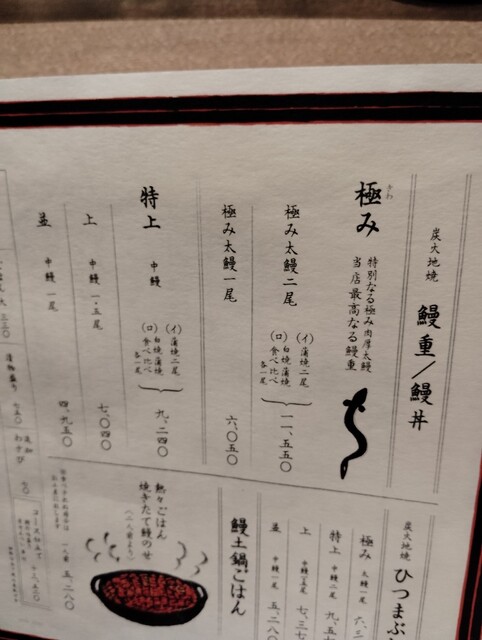 炭火地焼
鰻重／鰻丼
極み
きわ
特別なる極み肉厚太鰻
当店最高なる鰻重
極み太鰻二尾
(イ)蒲焼二尾
(ロ)白焼蒲焼
食べ比べ
各一尾
一一、五五〇
極み太鰻一尾
六、〇五〇
特上
中鰻
(イ)蒲焼二尾
(ロ)白焼蒲焼
食べ比べ
各一尾
九、二四〇
上
中鰻一・五尾
七、〇四〇
並
中鰻一尾
四、九五〇
炭火地焼
ひつまぶ
極み
太鰻一尾
六、
特上
中鰻二尾
九、五
上
七、三七
並
中鰻一尾
五、二八〇
鰻土鍋ごはん
熱々ごはん
焼きたて鰻のせ
五、二八〇
追加
わさび